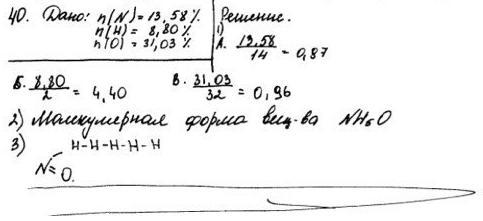 40. Дано: n(N) = 13,58 %. Решение.
n(H) = 8,80 %
n(O) = 31,03 %
1)
А. 13,58 / 14 = 0,87
Б. 8,80 / 2 = 4,40 В. 31,03 / 32 = 0,96
2) Малкумерная форма вещ-ва NH5O
3) H-H-H-H-H
N=O.